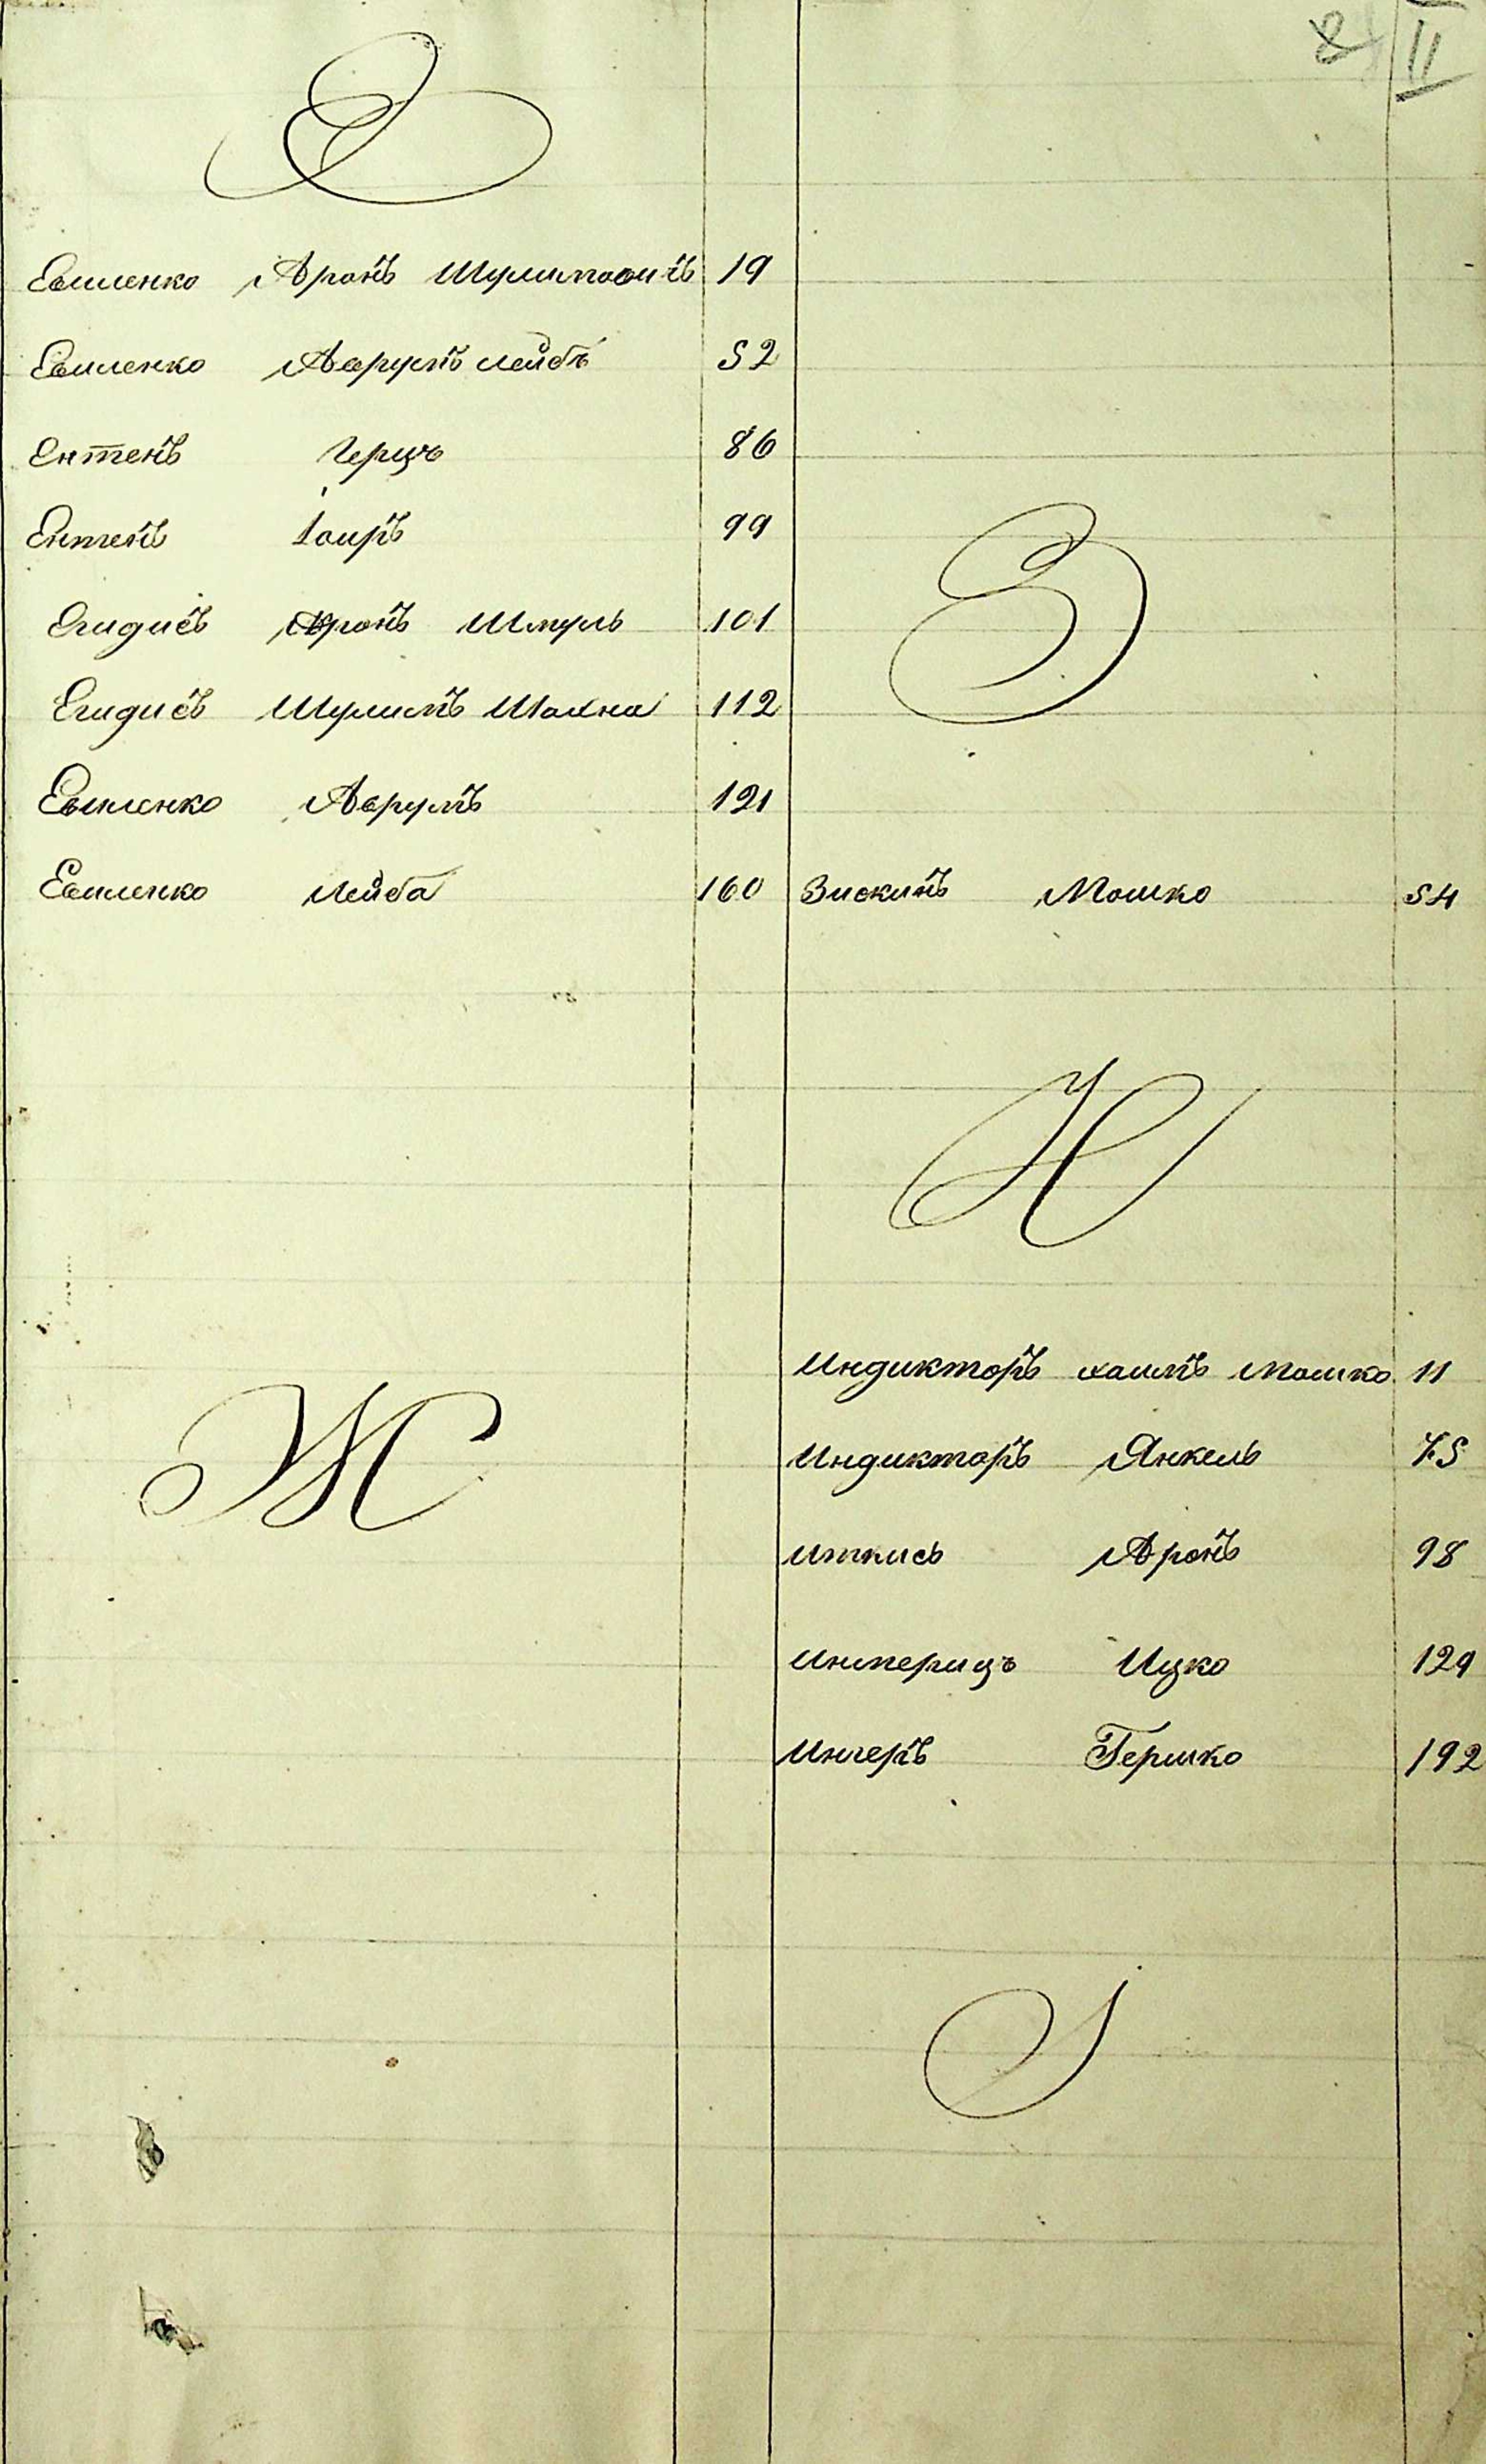 II
Е
Евиленко Аронъ Шулимовичъ 19
Евиленко Аврумъ Лейбъ 52
Ентенъ Герцъ 86
Ентенъ Іоиръ 99
Егидисъ Аронъ Шмуль 101
Егидисъ Шулимъ Шахна 112
Евиленко Аврумъ 121
Евиленко Лейба 160
Ж
З
Зискинъ Мошко 54
И
Индикторъ Хаимъ Мошко 11
Индикторъ Янкель 75
Иткись Аронъ 98
Ицко 129
Ингеръ Гершко 192
І